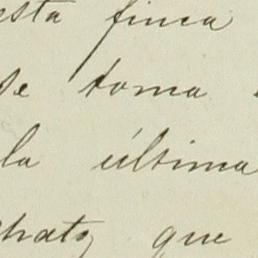 esta finca
se toma
la última
que